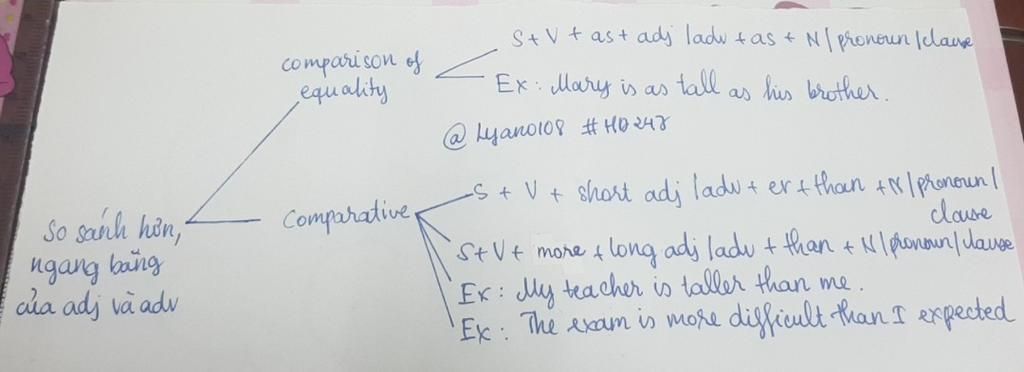 comparison of
equality
S + V + as + adj / adv + as + N / pronoun / clause
Ex : Mary is as tall as his brother.
@ Lyano108 #HD247
So sánh hơn,
ngang bằng
của adj và adv
Comparative
S + V + short adj / adv + er + than + N / pronoun /
clause
S + V + more + long adj / adv + than + N / pronoun / clause
Ex : My teacher is taller than me.
Ex : The exam is more difficult than I expected